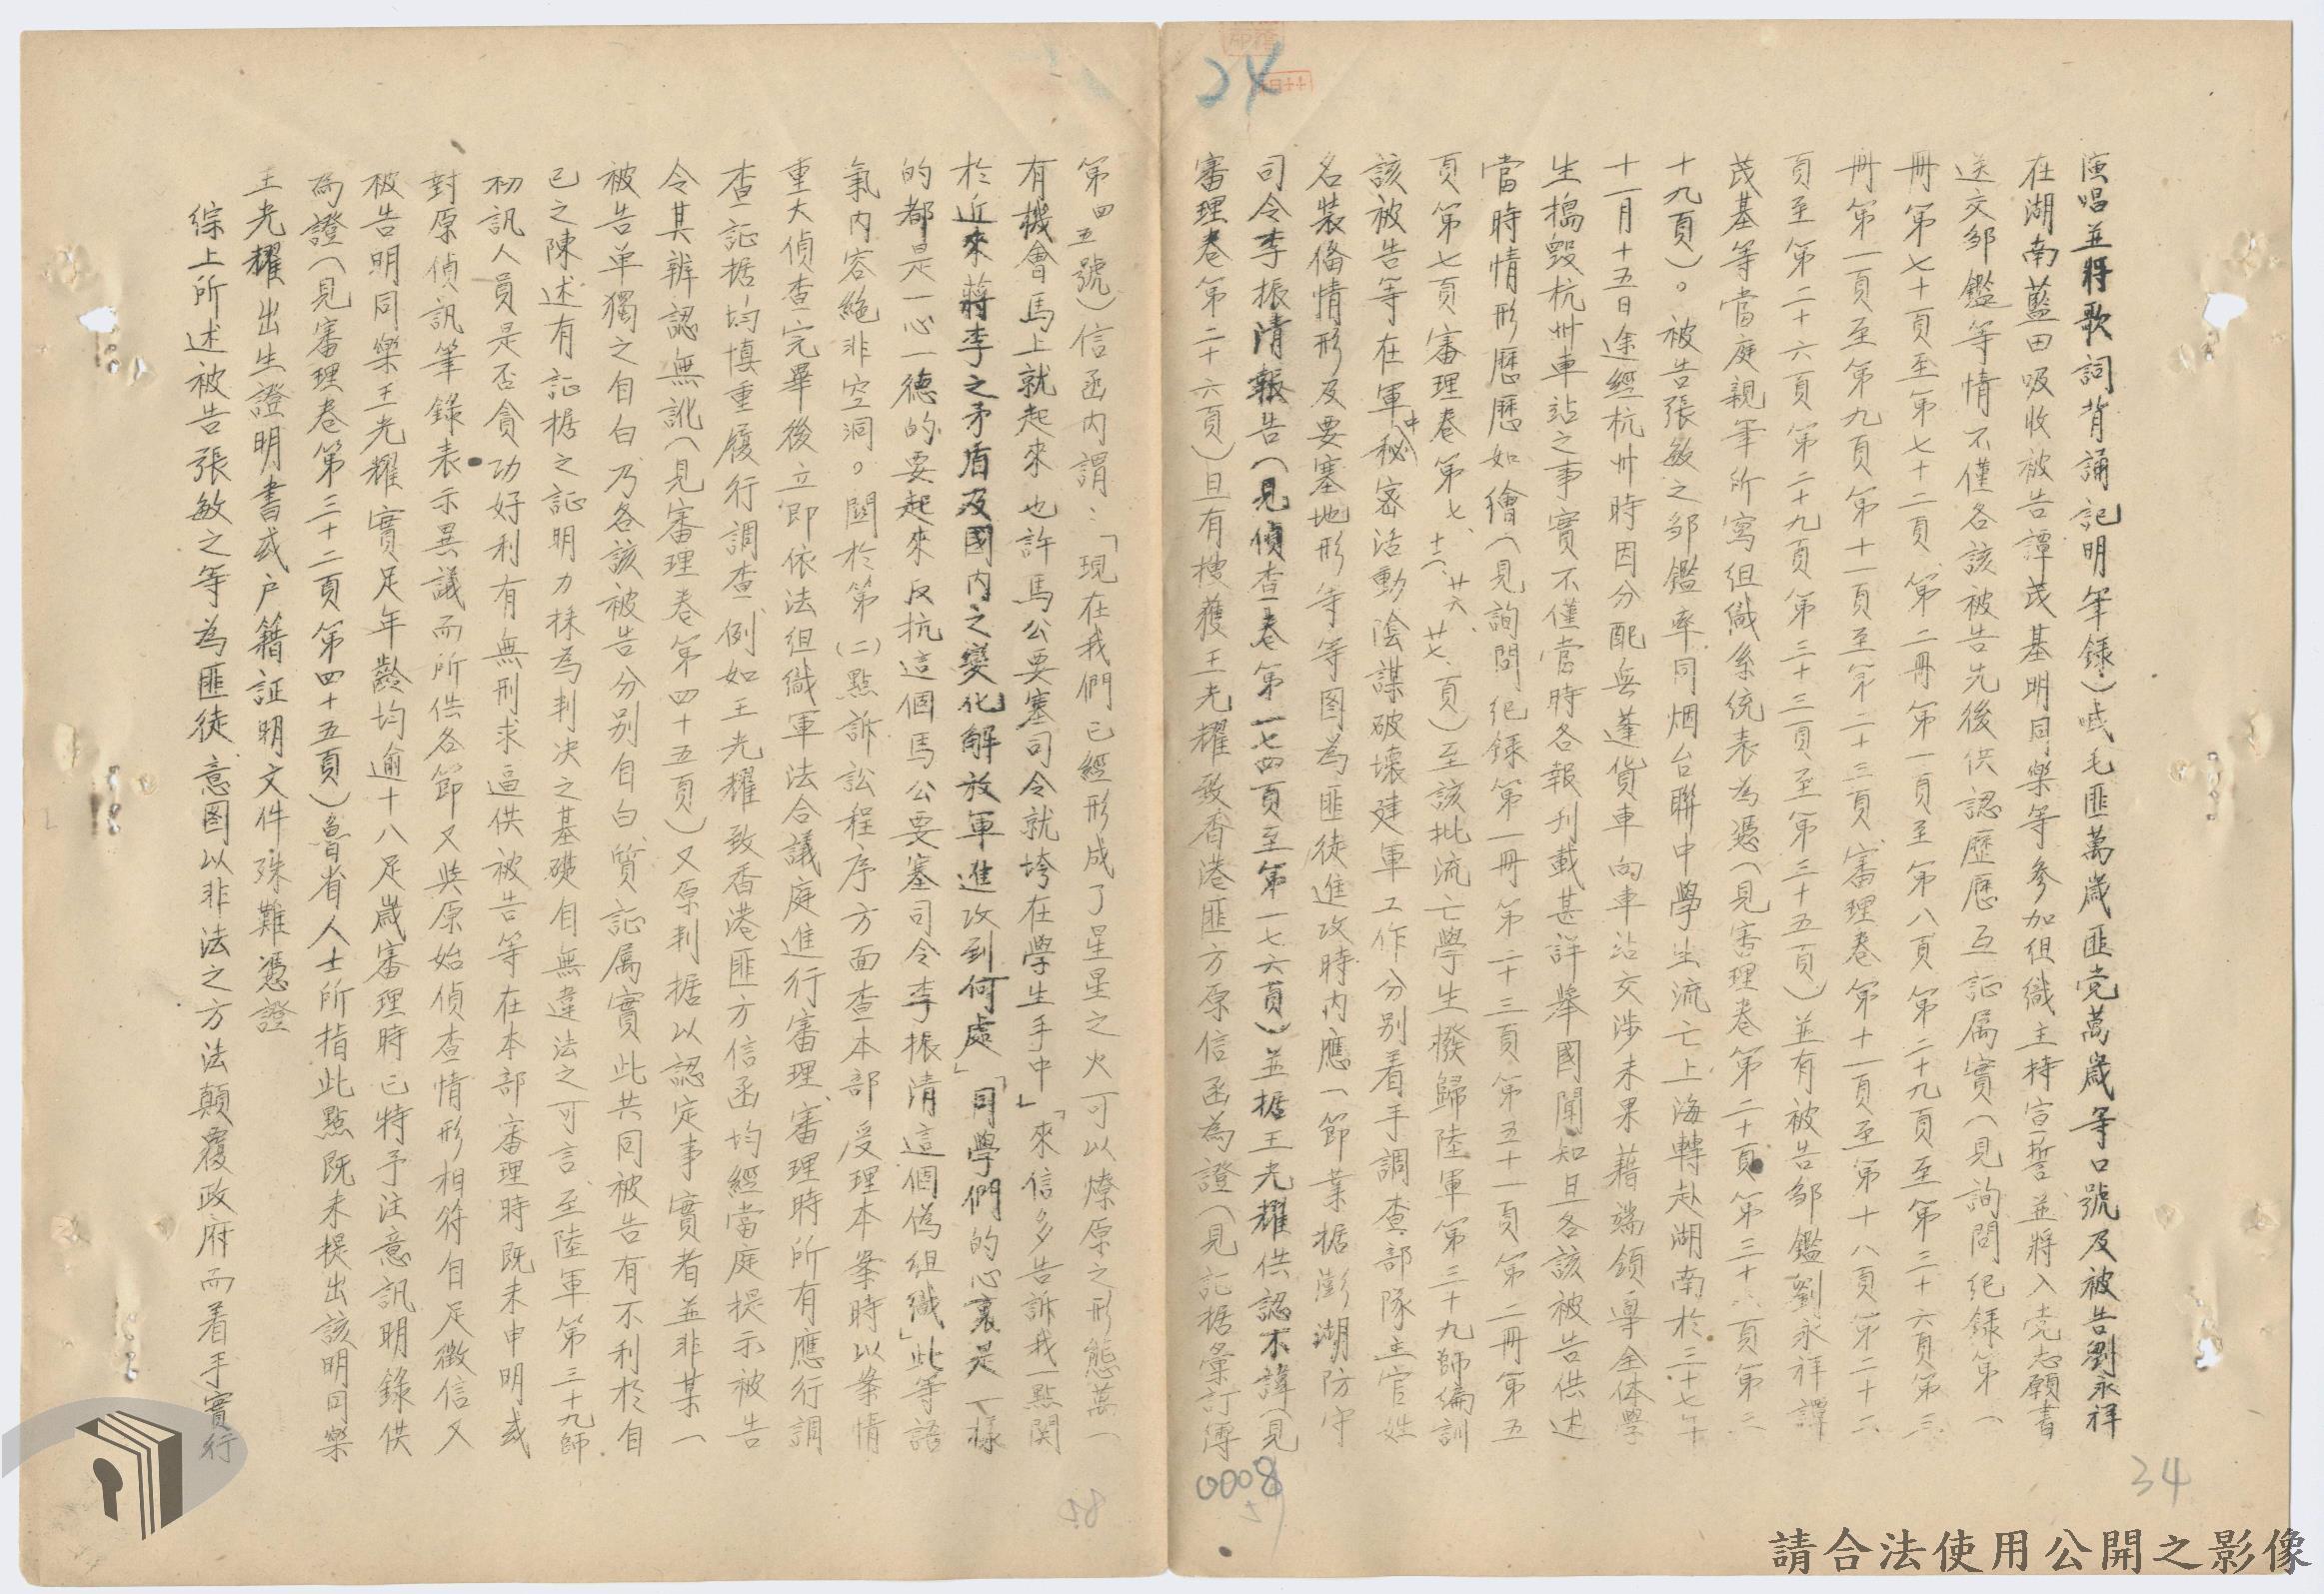 24
演唱並將歌詞背誦記明筆録）喊毛匪萬歲匪党萬歲等口號及被告劉永祥
在湖南藍田吸收被告譚茂基明同樂等參加組織主持宣誓並將入党志願書
送交邹鑑等情不僅各該被告先後供認歷歷互証属實（見詢問紀録第一
冊第七十頁至第七十二頁、第二冊第一頁至第八頁第二十九頁至第三十六頁第三
冊第一頁至第九頁第十一頁至第二十三頁、審理卷第十一頁至第十八頁第二十二
頁至第二十六頁第二十九頁第三十三頁至第三十五頁）並有被告邹鑑劉永祥譚
茂基等當庭親筆所寫組織系統表為憑（見審理卷第二十頁第三十六頁第三
十九頁）。被告張敏之邹鑑率同烟台聯中學生流亡上海轉赴湖南於三十七年
十一月十五日途經杭州時因分配無蓬貨車向車站交涉未果藉端領導全体學
生搗毀杭州車站之事實不僅當時各報刊載甚詳舉國聞知且各該被告供述
當時情形歷歷如繪（見詢問紀録第一冊第二十三頁第五十一頁第二冊第五
頁第七頁審理卷第七、十一、廿六、廿七、頁）至該批流亡學生撥歸陸軍第三十九師編訓
該被告等在軍中秘密活動陰謀破壞建軍工作分别着手調查部隊主官姓
名裝備情形及要塞地形等等图為匪徒進攻時内應一節業据澎湖防守
司令李振清報告（見偵查卷第一七四頁至第一七六頁）並据王光耀供認不諱（見
審理卷第二十六頁）且有摟獲王光耀致香港匪方原信函為證（見証据彙訂簿
0008
34
第四五號）信函内謂、「現在我們已經形成了星星之火可以燎原之形態萬一
有機會馬上就起來也許馬公要塞司令就垮在學生手中」「來信多告訴我一點関
於近來蔣李之矛盾及國内之變化解放軍進攻到何處」「同學們的心裏是一樣
的都是一心一德的要起來反抗這個馬公要塞司令李振清這個偽組織」此等語
氣内容絶非空洞。関於第(二)點訴訟程序方面查本部受理本案時以案情
重大偵查完畢後立即依法组織軍法合議庭進行審理、審理時所有應行調
查証据均慎重履行調查、例如王光耀致香港匪方信函均經當庭提示被告
令其辨認無訛（見審理卷第四十五頁）又原判据以認定事實者並非某一
被告单獨之自白乃各該被告分别自白、質証属實此共同被告有不利於自
己之陳述有証据之証明力採為判决之基礎自無違法之可言、至陸軍第三十九師
初訊人員是否貪功好利有無刑求逼供被告等在本部審理時既未申明或
對原偵訊筆錄表示異議而所供各節又與原始偵查情形相符自足徵信又
被告明同樂王光耀實足年齡均逾十八足歲審理時已特予注意訊明錄供
為證（見審理卷第三十二頁第四十五頁）魯省人士所指此點既未提出該明同樂
王光耀出生證明書或户籍証明文件殊難憑證
綜上所述被告張敏之等為匪徒意图以非法之方法顛覆政府而着手實行
58
請合法使用公開之影像